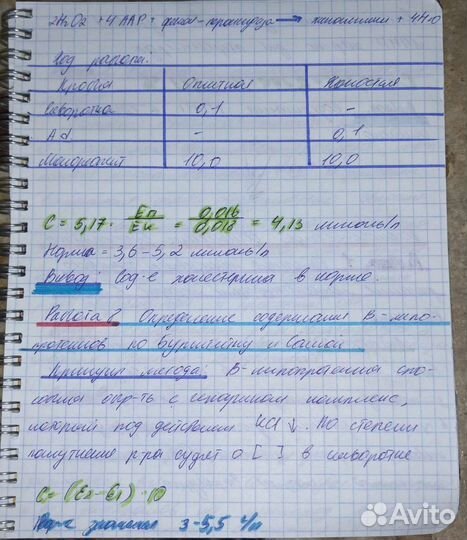 2H2O2 + 4 AAP + фенол-пероксидаза → хинонимин + 4H2O
Ход работы:
Кровья Опытная Холостая
Сыворотка 0,1 -
Ad - 0,1
Монореагент 10,0 10,0
C = 5,17 · Eп / Eк = 0,016 / 0,018 = 4,13 ммоль/л
Норма = 3,6 - 5,2 ммоль/л
Вывод: сод-е холестерина в норме.
Работа 2 Определение содержания B-липо-
протеинов по Бурштейну и Самай
Принцип метода: B-липопротеины спо-
собны опр-ть с гепарином комплекс,
который под действием ↓. По степени
помутнения р-ра судят о [ ] в сыворотке
C = (E2 - E1) · 10
значения 3-5,5 г/л
Avito